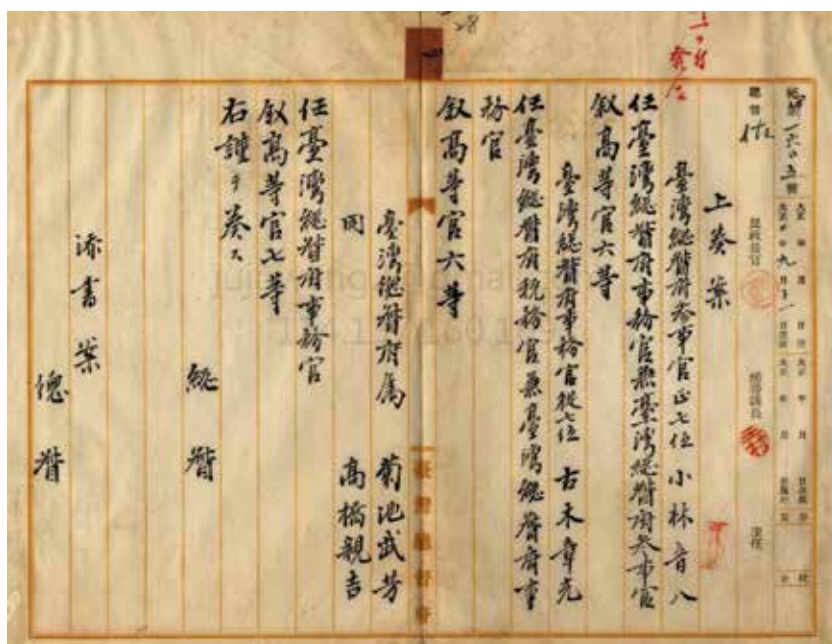 上奏案
臺灣總督府參事官正七位 小林音八
任臺灣總督府事務官兼臺灣總督府參事官
敘高等官六等
臺灣總督府事務官從七位 古木章光
任臺灣總督府稅務官兼臺灣總督府事
務官
敘高等官六等
臺灣總督府屬 菊池武芳
同 高橋親吉
任臺灣總督府事務官
敘高等官七等
右謹テ奏ス
總督
添書案
總督
臺灣總督府